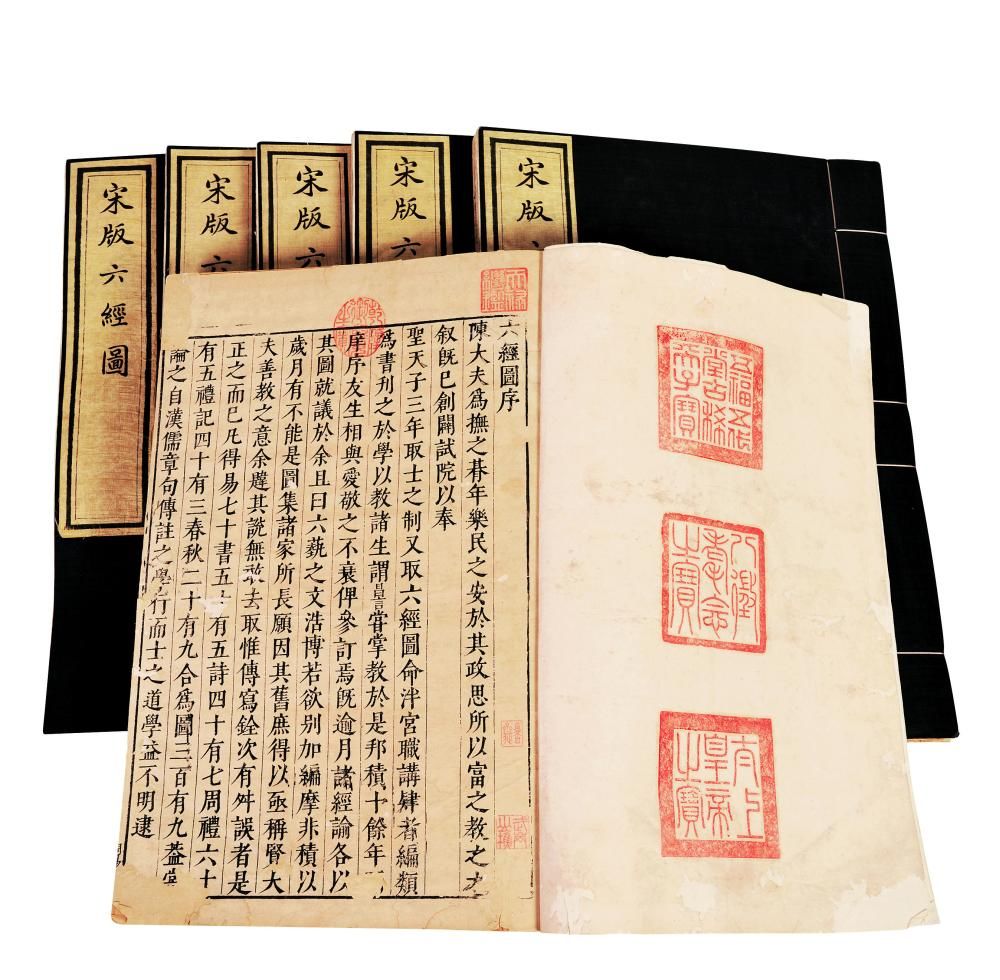 宋版六經圖
宋版六
宋版六
宋版六
宋版
五福五代堂古稀天子寶
八徵耄念之寶
太上皇帝之寶
六經圖序
陳大夫爲撫之朞年樂民之安於其政思所以富之教之之
叙旣已創闢試院以奉
聖天子三年取士之制又取六經圖命泮宮職講肄者編類
爲書刋之於學以教諸生謂昌言甞掌教於是邦積十餘年
庠序友生相與愛敬之不衰俾參訂焉旣逾月諸經論各以
其圖就議於余且曰六藝之文浩博若欲别加編摩非積以
歲月有不能是圖集諸家所長願因其舊庶得以亟稱賢大
夫善教之意余韙其說無敢去取惟傳寫銓次有舛誤者是
正之而已凡得易七十書五十有五詩四十有七周禮六十
有五禮記四十有三春秋二十有九合爲圖三百有九葢嘗
論之自漢儒章句傳註之學行而士之道學益不明逮
乾隆御覽之寶